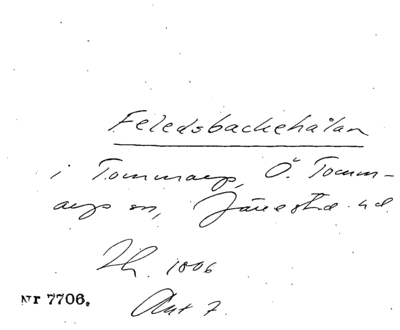 Feledsbackehålan
i Tommarp, Ö. Tomm-
arps sn, Järrestad hd.
Lh. 1806
Akt 7.
Nr 7706.